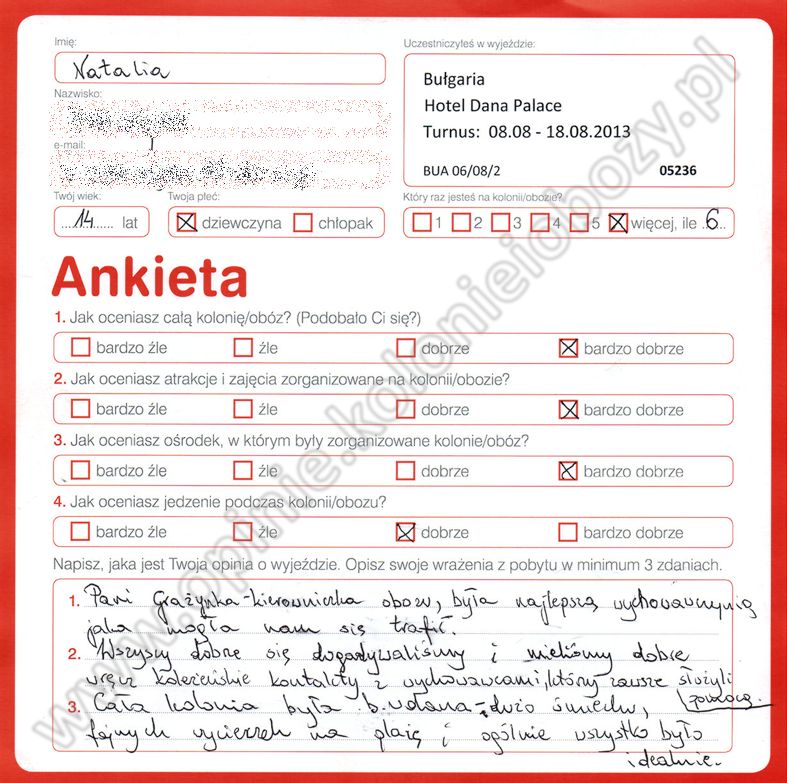 Imię:
Natalia
Nazwisko:
e-mail:
Twój wiek:
14 lat
Twoja płeć:
dziewczyna chłopak
Uczestniczyłeś w wyjeździe:
Bułgaria
Hotel Dana Palace
Turnus: 08.08 - 18.08.2013
BUA 06/08/2 05236
Który raz jesteś na kolonii/obozie?
1 2 3 4 5 więcej, ile 6
Ankieta
1. Jak oceniasz całą kolonię/obóz? (Podobało Ci się?)
bardzo źle źle dobrze bardzo dobrze
2. Jak oceniasz atrakcje i zajęcia zorganizowane na kolonii/obozie?
bardzo źle źle dobrze bardzo dobrze
3. Jak oceniasz ośrodek, w którym były zorganizowane kolonie/obóz?
bardzo źle źle dobrze bardzo dobrze
4. Jak oceniasz jedzenie podczas kolonii/obozu?
bardzo źle źle dobrze bardzo dobrze
Napisz, jaka jest Twoja opinia o wyjeździe. Opisz swoje wrażenia z pobytu w minimum 3 zdaniach.
1. Pani Grażynka-kierowniczka obozu, była najlepszą wychowawczynią
jaka mogła nam się trafić.
2. Wszyscy dobrze się dogadywaliśmy i mieliśmy dobre
wręcz koleżeńskie kontakty z wychowawcami, który zawsze służyli
pomocą.
3. Cała kolonia była b. udana-dużo śmiechu,
fajnych wycieczek na plażę i ogólnie wszystko było
idealnie.
www.opinie.kolonieiobozy.pl